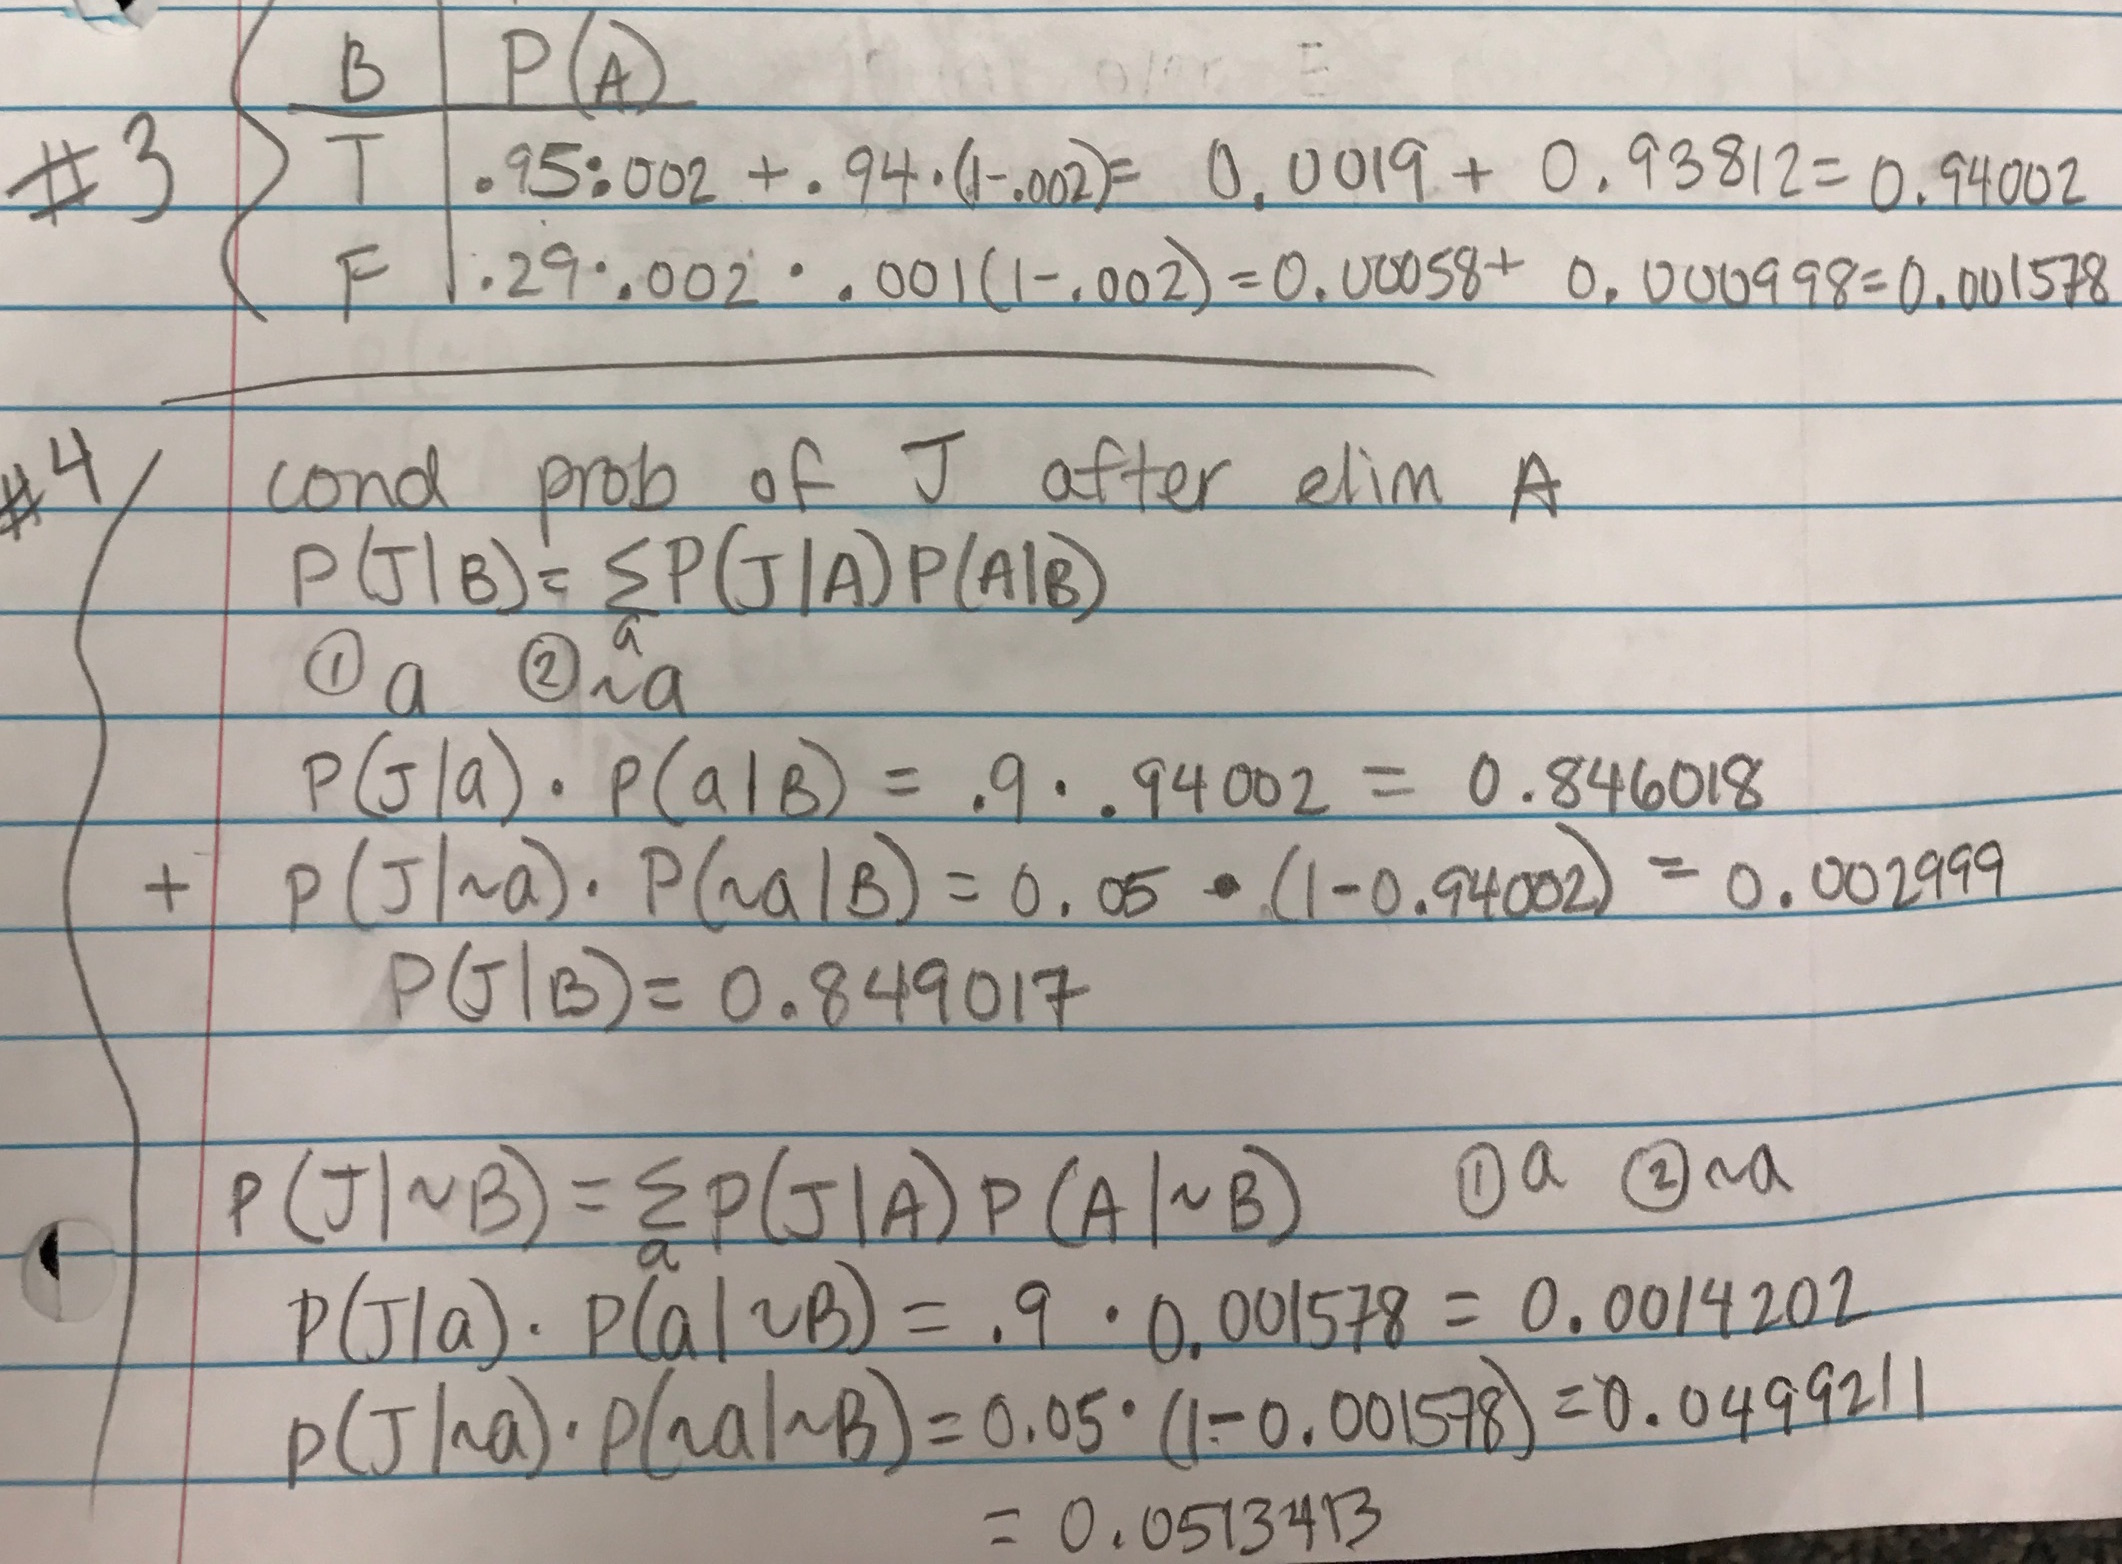 B | P(A)
#3 T | .95·.002 + .94·(1-.002)= 0.0019 + 0.93812= 0.94002
F | .29·.002 · .001(1-.002)=0.00058+ 0.000998=0.001578
#4 cond prob of J after elim A
P(J|B)= ΣP(J|A)P(A|B)
a
① a ② ~a
P(J|a)· P(a|B) = .9 · .94002 = 0.846018
+ P(J|~a)· P(~a|B) = 0.05 • (1-0.94002) = 0.002999
P(J|B)= 0.849017
P(J|~B) = Σ P(J|A) P(A|~B) ① a ② ~a
a
P(J|a)· P(a|~B) = .9 · 0.001578 = 0.0014202
P(J|~a)·P(~a|~B) = 0.05·(1-0.001578)=0.0499211
= 0.0513413